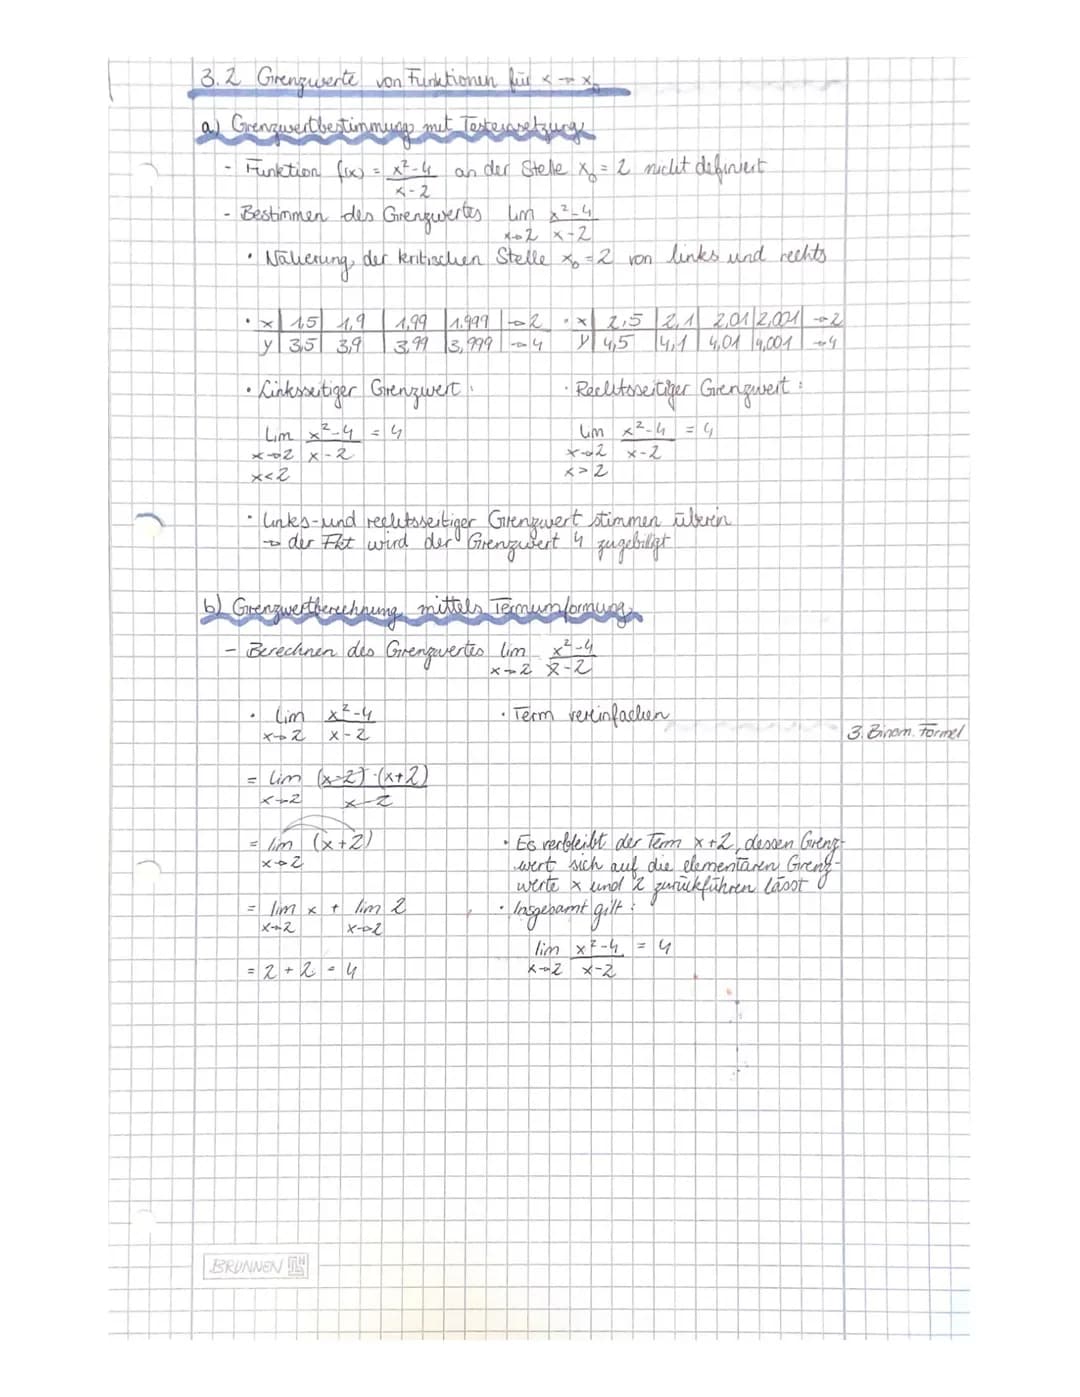 3.2 Grenzwerte von Funktionen für x → x₀
a) Grenzwertbestimmung mit Testeinsetzung
- Funktion f(x) = x²-4 / x-2 an der Stelle x₀ = 2 nicht definiert
- Bestimmen des Grenzwertes lim x→2 x²-4 / x-2
• Näherung der kritischen Stelle x₀ = 2 von links und rechts
• x | 1,5 | 1,9 | 1,99 | 1,999 | → 2 • x | 2,5 | 2,1 | 2,01 | 2,001 | → 2
y | 3,5 | 3,9 | 3,99 | 3,999 | → 4 y | 4,5 | 4,1 | 4,01 | 4,001 | → 4
• Linksseitiger Grenzwert : • Rechtsseitiger Grenzwert :
lim x→2 x<2 x²-4 / x-2 = 4 lim x→2 x>2 x²-4 / x-2 = 4
• Links- und rechtsseitiger Grenzwert stimmen überein
→ der Fkt wird der Grenzwert 4 zugebilligt
b) Grenzwertberechnung mittels Termumformung
- Berechnen des Grenzwertes lim x→2 x²-4 / x-2
• lim x→2 x²-4 / x-2 • Term vereinfachen
3. Binom. Formel
= lim x→2 (x-2)·(x+2) / x-2
= lim x→2 (x+2) • Es verbleibt der Term x+2, dessen Grenz-
wert sich auf die elementaren Grenz-
werte x und 2 zurückführen lässt
= lim x→2 x + lim x→2 2 • Insgesamt gilt :
= 2 + 2 = 4 lim x→2 x²-4 / x-2 = 4
BRUNNEN